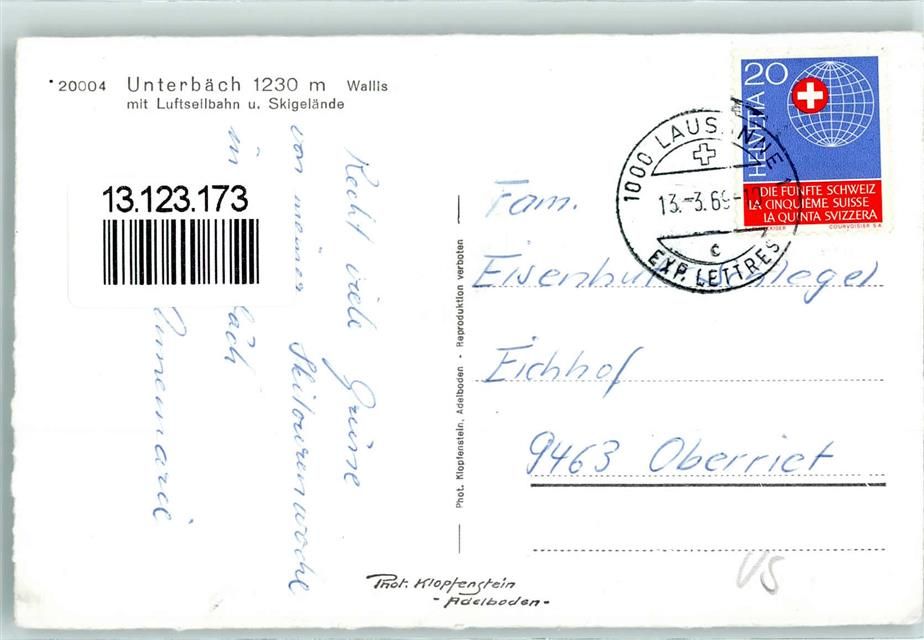 20004 Unterbäch 1230 m Wallis
mit Luftseilbahn u. Skigelände
13.123.173
Recht viele Grüsse
von meiner Skitourenwoche
in
Annemarie
Phot. Klopfenstein, Adelboden - Reproduktion verboten
Phot. Klopfenstein
- Adelboden -
20
HELVETIA
DIE FÜNFTE SCHWEIZ
LA CINQUIÈME SUISSE
LA QUINTA SVIZZERA
COURVOISIER S.A.
1000 LAUSANNE 1
13.-3.69-
c
EXP. LETTRES
Fam.
Eichhof
9463 Oberriet
VS